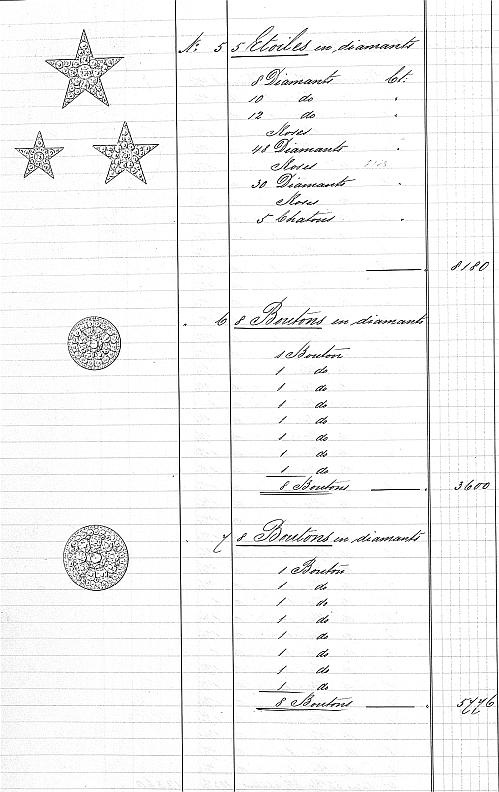 No: 5 5 Etoiles en diamants
8 Diamants Ct:
10 do "
12 do "
Roses
48 Diamants "
Roses
30 Diamants "
Roses
5 Chatons "
8180
" 6 8 Boutons en diamants
1 Bouton
1 do
1 do
1 do
1 do
1 do
1 do
1 do
8 Boutons 3600
" 7 8 Boutons en diamants
1 Bouton
1 do
1 do
1 do
1 do
1 do
1 do
1 do
8 Boutons 5776